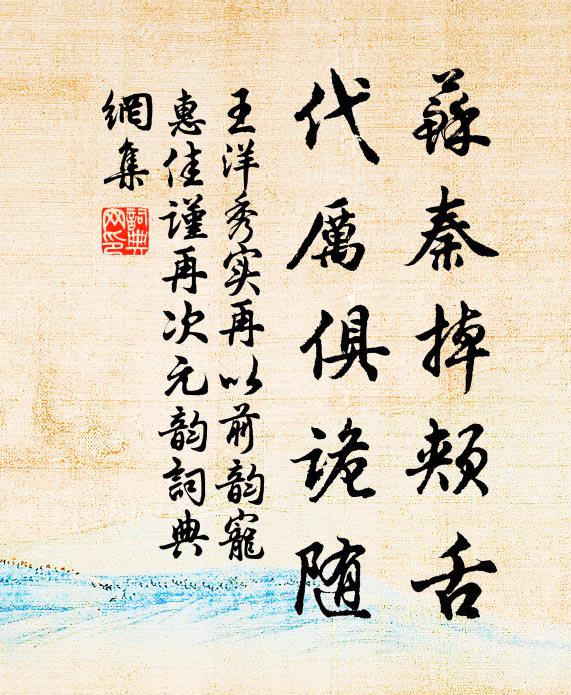 蘇秦掉頰舌
代厲俱詭随
王洋秀实再以前韵寵
惠佳谨再次元韵詞典
網集
詞典网印